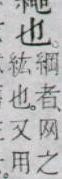 繩也。
綱者、网之
紘也。又用